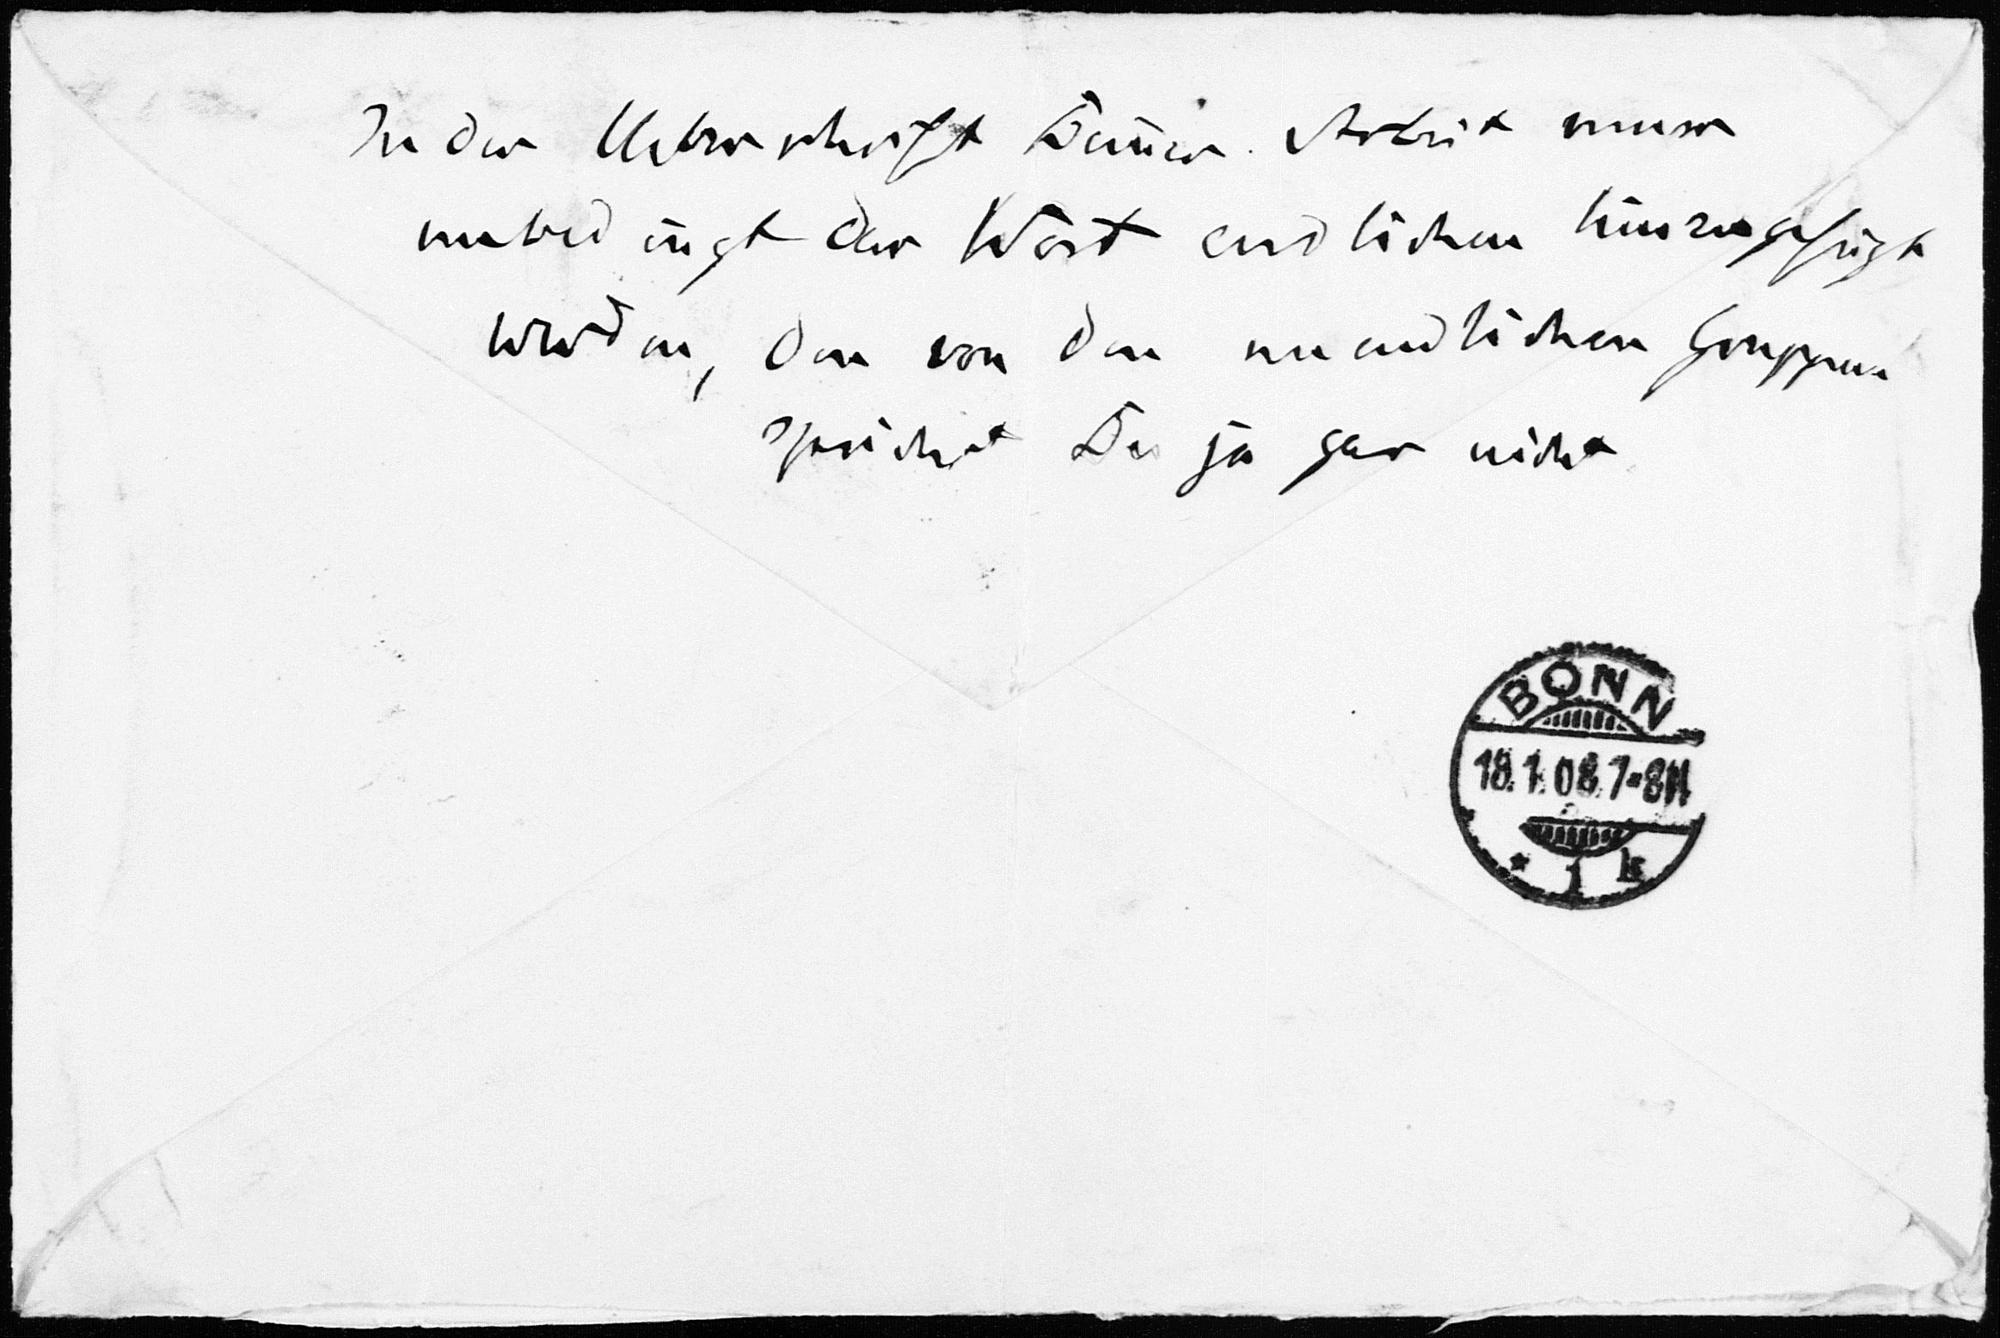 In der Ueberschrift Deiner Arbeit muss
unbedingt das Wort endlichen hinzugefügt
werden, den von den unendlichen Gruppen
sprichst Du ja gar nicht
BONN
18.1.08.7-8N
* 1 k